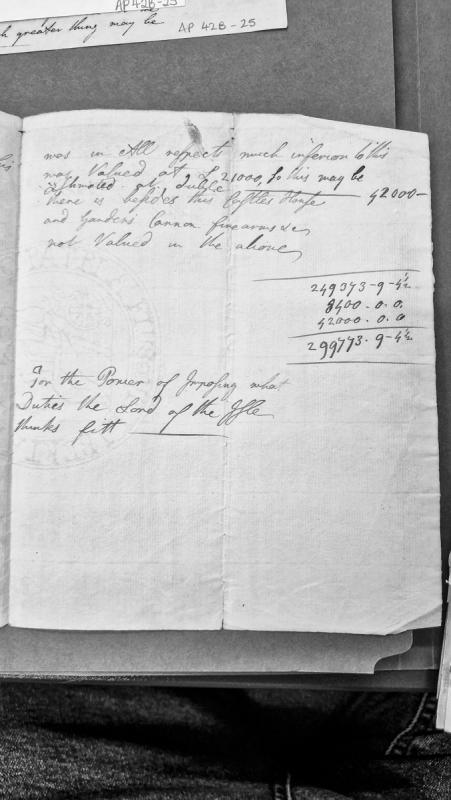 AP 42B-25
h greater thing may be
AP 42B-25
was in All respects much inferior to this
may Valued at £21000, so this may be
Estimated at duble 42000—
there is besides this Castles House
and Gardens Cannon firearms &c
not Valued in the above
249373-9-4½
8400.0.0.
42000.0.0
299773.9-4½
For the Power of Imposing what
Duties the Lord of the Isle
thinks fitt